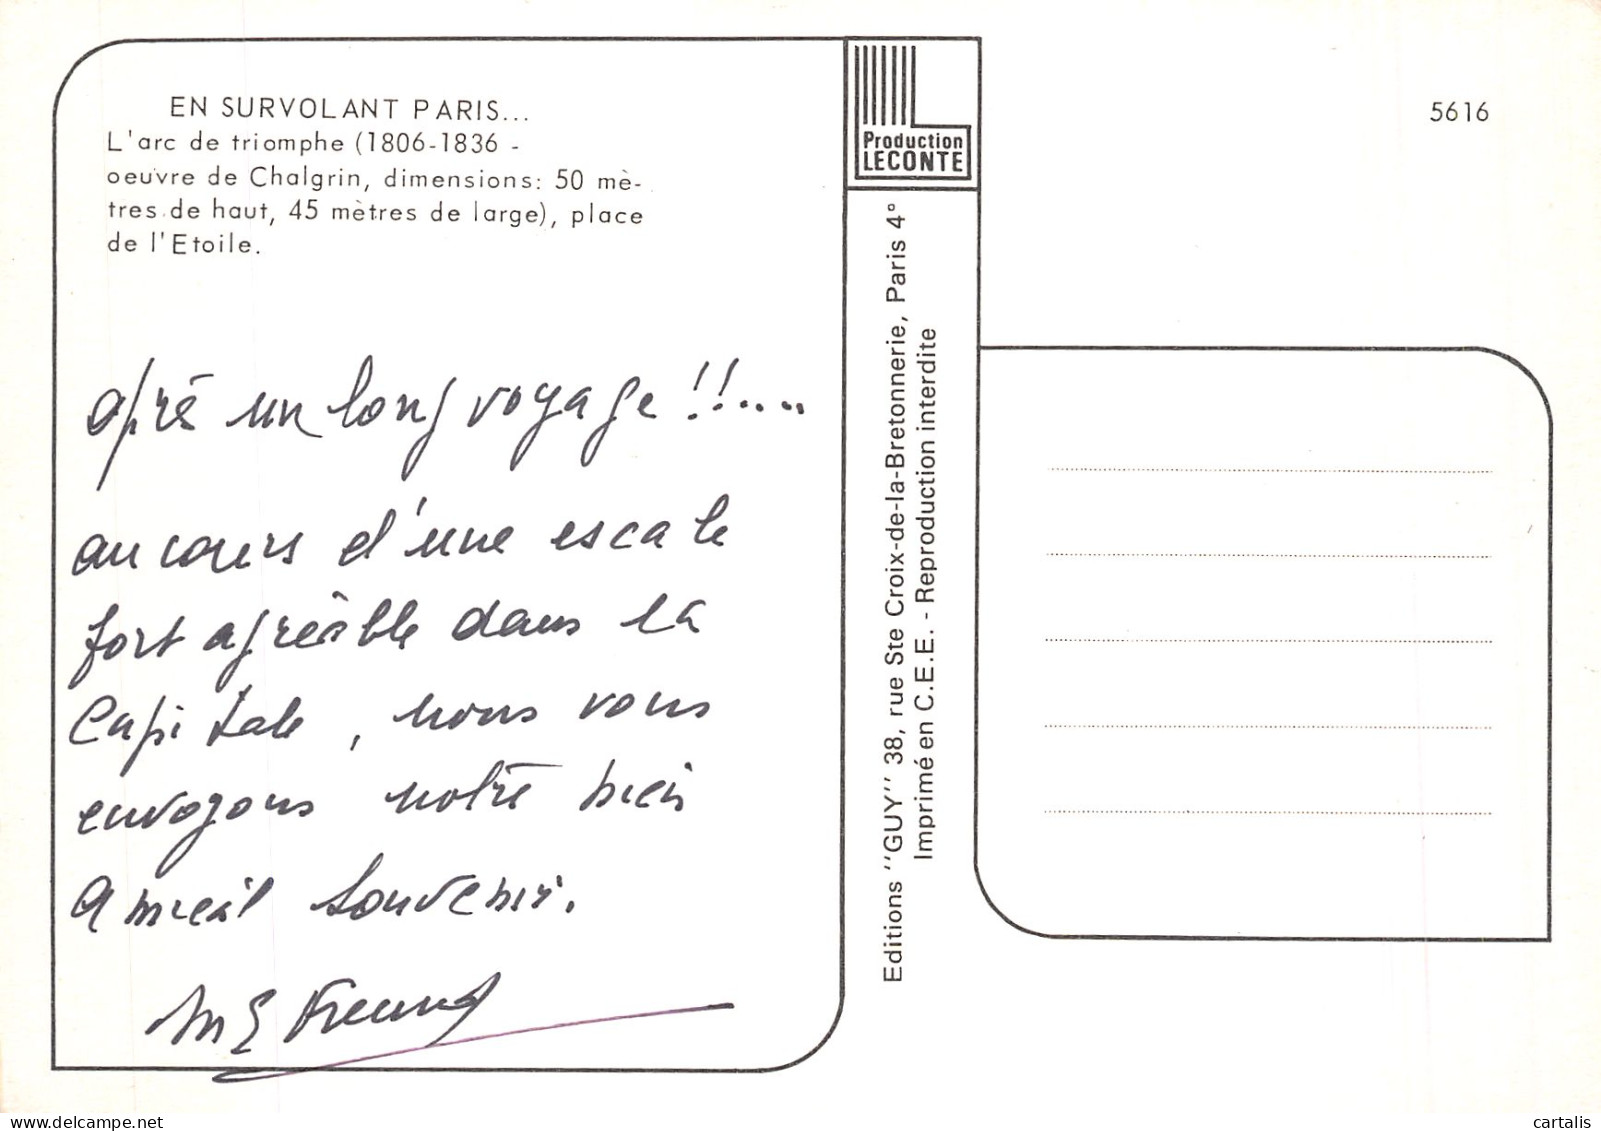 EN SURVOLANT PARIS...
L'arc de triomphe (1806-1836 -
oeuvre de Chalgrin, dimensions: 50 mè-
tres de haut, 45 mètres de large), place
de l'Etoile.
après un long voyage !!....
au cours d'une escale
fort agréable dans la
Capitale, nous vous
envoyons notre bien
amical souvenir.
Freund
Production
LECONTE
Editions "GUY" 38, rue Ste Croix-de-la-Bretonnerie, Paris 4°
Imprimé en C.E.E. - Reproduction interdite
5616
cartalis